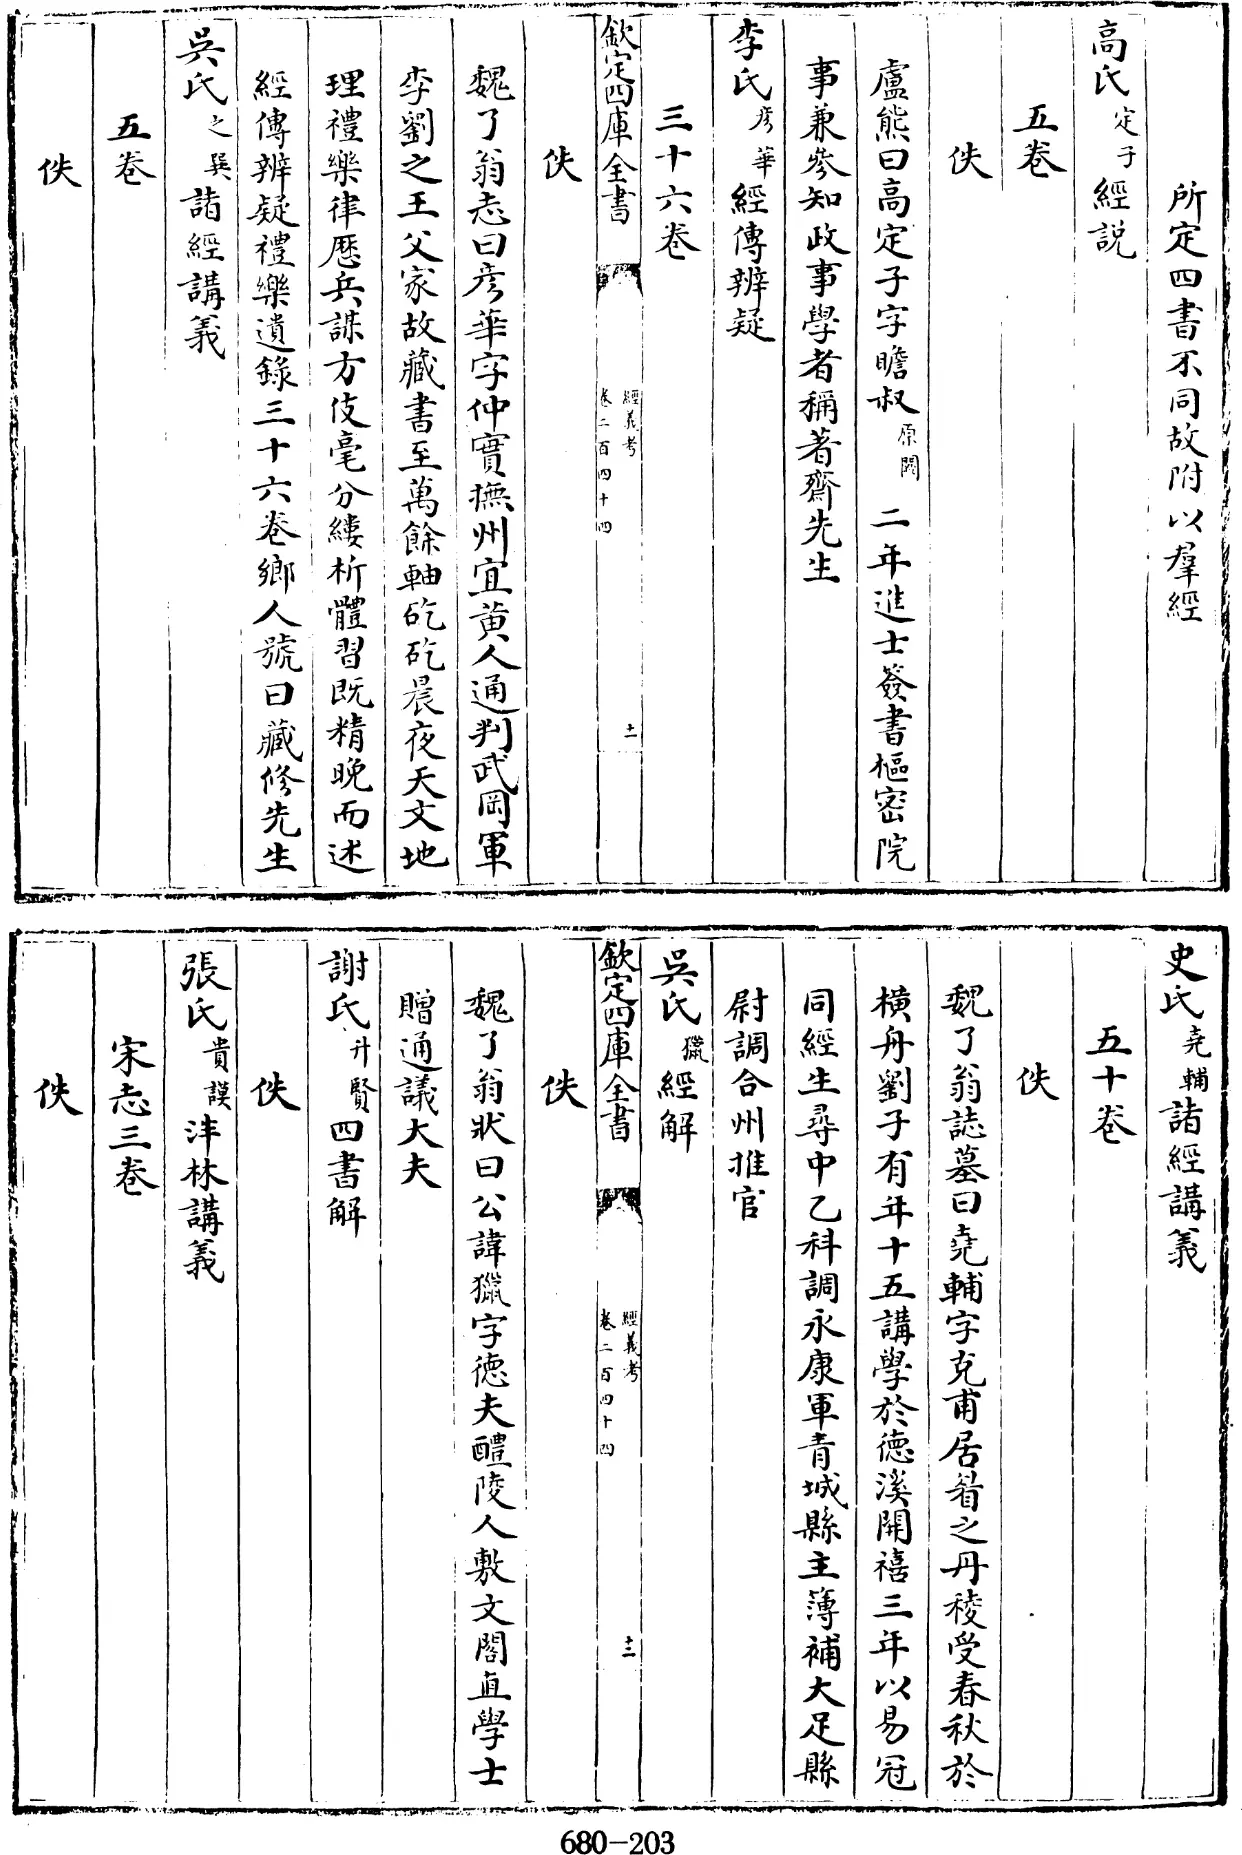 所定四書不同故附以羣經
高氏定子經説
五卷
佚
盧熊曰高定子字瞻叔原闕二年進士簽書樞密院
事兼參知政事學者稱著齋先生
李氏彦華經傳辨疑
三十六卷
欽定四庫全書 經義考 卷二百四十四 十一
佚
魏了翁志曰彦華字仲實撫州宜黄人通判武岡軍
李劉之王父家故藏書至萬餘軸矻矻晨夜天文地
理禮樂律厯兵謀方伎毫分縷析體習既精晚而述
經傳辨疑禮樂遺錄三十六卷鄉人號曰藏修先生
吳氏之巽諸經講義
五卷
佚
史氏堯輔諸經講義
五十卷
佚
魏了翁誌墓曰堯輔字克甫居眉之丹稜受春秋於
横舟劉子有年十五講學於德溪開禧三年以易冠
同經生尋中乙科調永康軍青城縣主簿補大足縣
尉調合州推官
吳氏獵經解
欽定四庫全書 經義考 卷二百四十四 十二
佚
魏了翁狀曰公諱獵字德夫醴陵人敷文閣直學士
贈通議大夫
謝氏升賢四書解
佚
張氏貴謨泮林講義
宋志三卷
佚
680-203